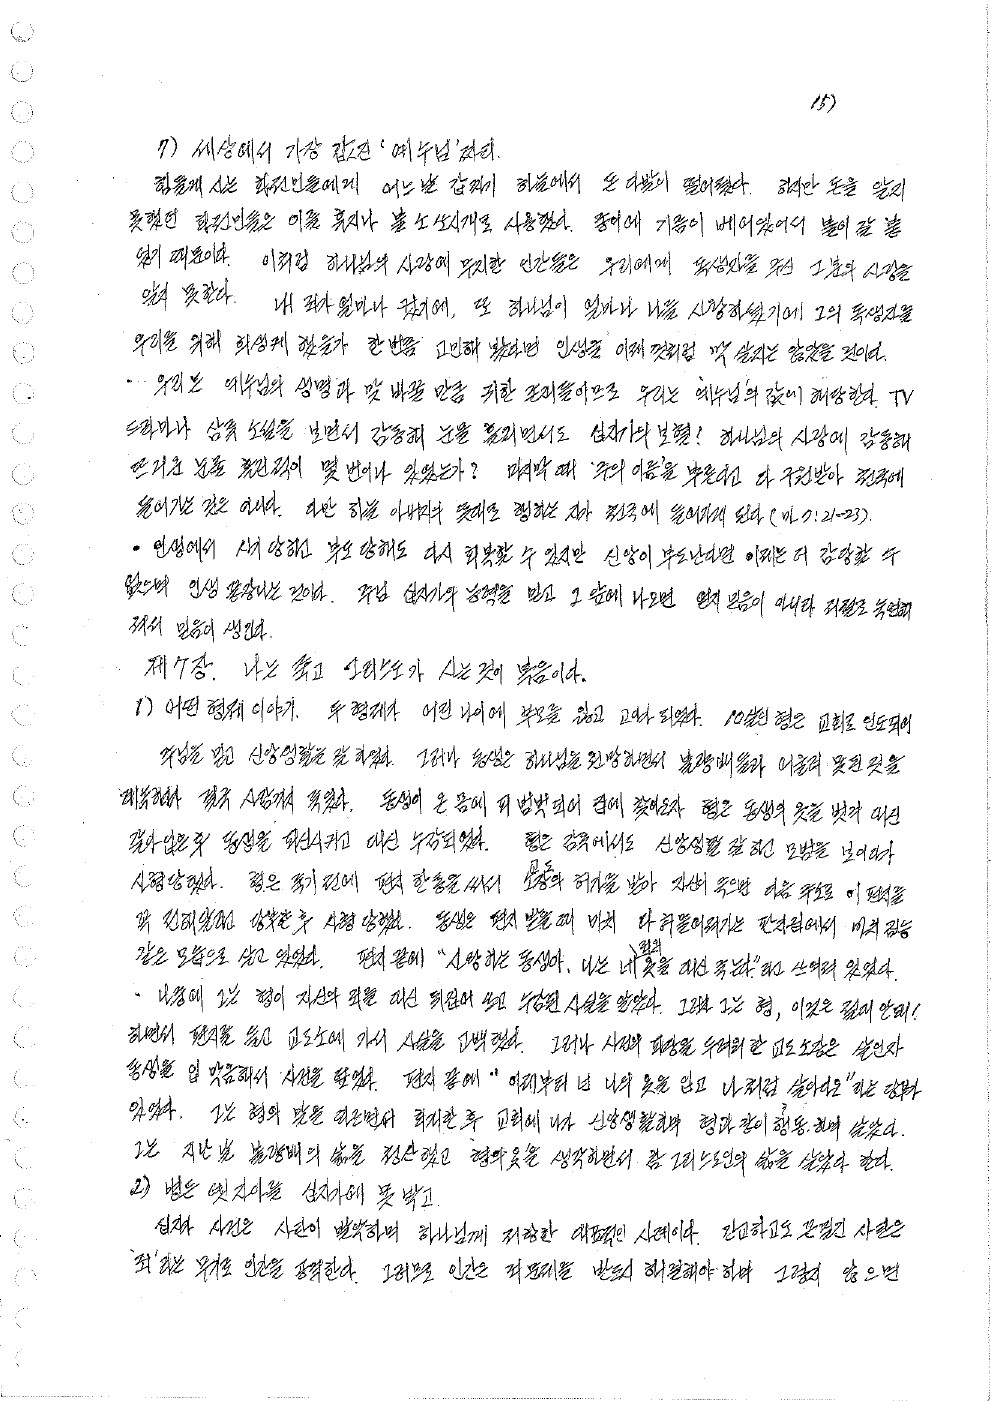 15)
7) 세상에서 가장 값진 '예수님'짜리.
힘들게 사는 화전민들에게 어느 날 갑자기 하늘에서 돈 다발이 떨어졌다. 하지만 돈을 알지
못했던 화전민들은 이를 휴지나 불 쏘시개로 사용했다. 종이에 기름이 베어있어서 불이 잘 붙
었기 때문이다. 이처럼 하나님의 사랑에 무지한 인간들은 우리에게 독생자를 주신 그분의 사랑을
알지 못한다. 내 죄가 얼마나 컸기에, 또 하나님이 얼마나 나를 사랑하셨기에 그의 독생자를
우리를 위해 희생케 했을가 한번쯤 고민해 봤다면 인생을 이제껏처럼 막 살지는 않았을 것이다.
· 우리는 예수님의 생명과 맞 바꿀 만큼 귀한 존재들이므로 우리는 '예수님'의 값에 해당한다. TV
드라마나 삼류 소설을 보면서 감동해 눈물 흘리면서도 십자가의 보혈! 하나님의 사랑에 감동해
뜨거운 눈물 흘린적이 몇 번이나 있었는가? 마지막 때 '주의 이름'을 부른다고 다 구원받아 천국에
들어가는 것은 아니다. 다만 하늘 아버지의 뜻대로 행하는 자가 천국에 들어가게 된다 (마 7:21-23).
• 인생에서 사기 당하고 부도 당해도 다시 회복할 수 있지만 신앙이 부도난다면 이제는 더 감당할 수
없으며 인생 끝장나는 것이다. 주님 십자가의 능력을 믿고 그 앞에 나오면 억지 믿음이 아니라 저절로 녹연해
져서 믿음이 생긴다.
제7장. 나는 죽고 그리스도가 사는 것이 복음이다.
1) 어떤 형제 이야기. 두 형제가 어린 나이에 부모를 잃고 고아가 되었다. 10살된 형은 교회로 인도되어
주님을 믿고 신앙생활을 잘 하였다. 그러나 동생은 하나님을 원망하면서 불량배들과 어울려 못된 짓을
계속하다 결국 사람까지 죽였다. 동생이 온 몸에 피 범벅되어 집에 찾아오자 형은 동생의 옷을 벗겨 대신
갈아입은 후 동생을 피신시키고 대신 수감되었다. 형은 감옥에서도 신앙생활 잘 하고 모범을 보이다가
사형당했다. 형은 죽기 전에 편지 한통을 써서 교도소장의 허락을 받아 자신이 죽으면 다음 주소로 이 편지를
꼭 전해달라고 당부한 후 사형 당했다. 동생은 편지 받을 때 마치 다 허물어져가는 판자집에서 마치 짐승
같은 모습으로 살고 있었다. 편지 끝에 "사랑하는 동생아, 나는 네 죄의 옷을 대신 죽는다"라고 쓰여져 있었다.
· 나중에 그는 형이 자신의 죄를 대신 뒤집어 쓰고 수감된 사실을 알았다. 그러자 그는 형, 이것은 절대 안돼!
하면서 편지를 들고 교도소에 가서 사실을 고백했다. 그러나 사건의 파장을 두려워한 교도소장은 살인자
동생을 입 막음해서 사건을 덮었다. 편지 끝에 "이제부터 넌 나의 옷을 입고 나처럼 살아다오"라는 당부가
있었다. 그는 형의 말을 떠올리면서 회개한 후 교회에 나가 신앙생활하며 형과 같이 행동하며 살았다.
그는 지난날 불량배의 삶을 청산했고 형의 옷을 생각하면서 참 그리스도인의 삶을 살았다 한다.
2) 변론 옛 자아를 십자가에 못 박고.
십자가 사건은 사탄이 발악하며 하나님께 저항한 대표적인 사례이다. 간교하고도 끈질긴 사탄은
'죄'라는 무기로 인간을 공격한다. 그러므로 인간은 죄 문제를 반드시 해결해야 하며 그렇지 않으면